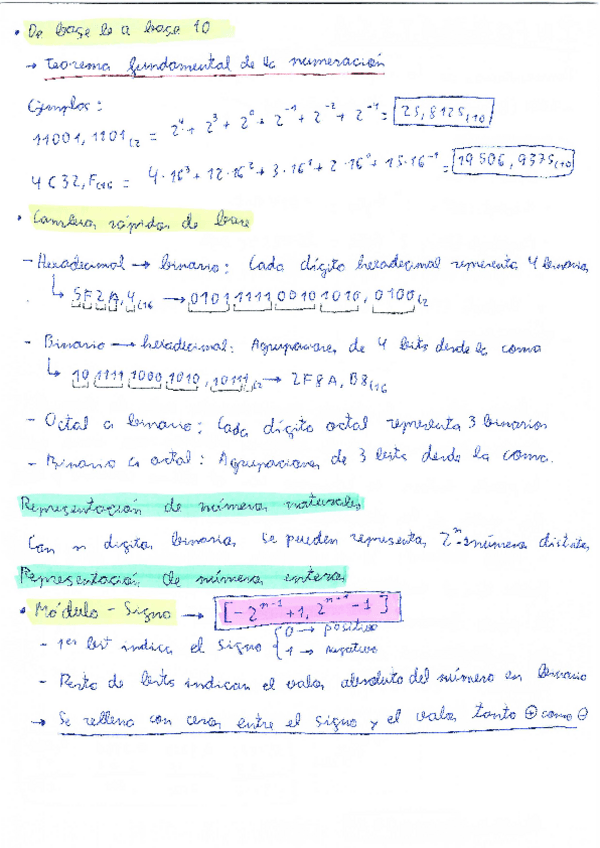 • De base b a base 10
→ Teorema fundamental de la numeración
Ejemplos:
11001,1101₍₂ = 2⁴ + 2³ + 2⁰ + 2⁻¹ + 2⁻² + 2⁻⁴ = 25,8125₍₁₀
4C32,F₍₁₆ = 4·16³ + 12·16² + 3·16¹ + 2·16⁰ + 15·16⁻¹ = 19506,9375₍₁₀
• Cambios rápidos de base
- Hexadecimal → binario: Cada dígito hexadecimal representa 4 binarios
↳ 5F2A,4₍₁₆ → 0101 1111 0010 1010, 0100₍₂
- Binario → hexadecimal: Agrupaciones de 4 bits desde la coma
↳ 10 1111 1000 1010, 10111₍₂ → 2F8A,B8₍₁₆
- Octal a binario: Cada dígito octal representa 3 binarios
- Binario a octal: Agrupaciones de 3 bits desde la coma.
Representación de números naturales
Con n dígitos binarios se pueden representar 2ⁿ números distintos
Representación de números enteros
• Módulo - Signo → [-2ⁿ⁻¹ + 1, 2ⁿ⁻¹ - 1]
- 1er bit indica el signo { 0 → positivo
1 → negativo
- Resto de bits indican el valor absoluto del número en binario
→ Se rellena con ceros entre el signo y el valor tanto ⊕ como ⊖